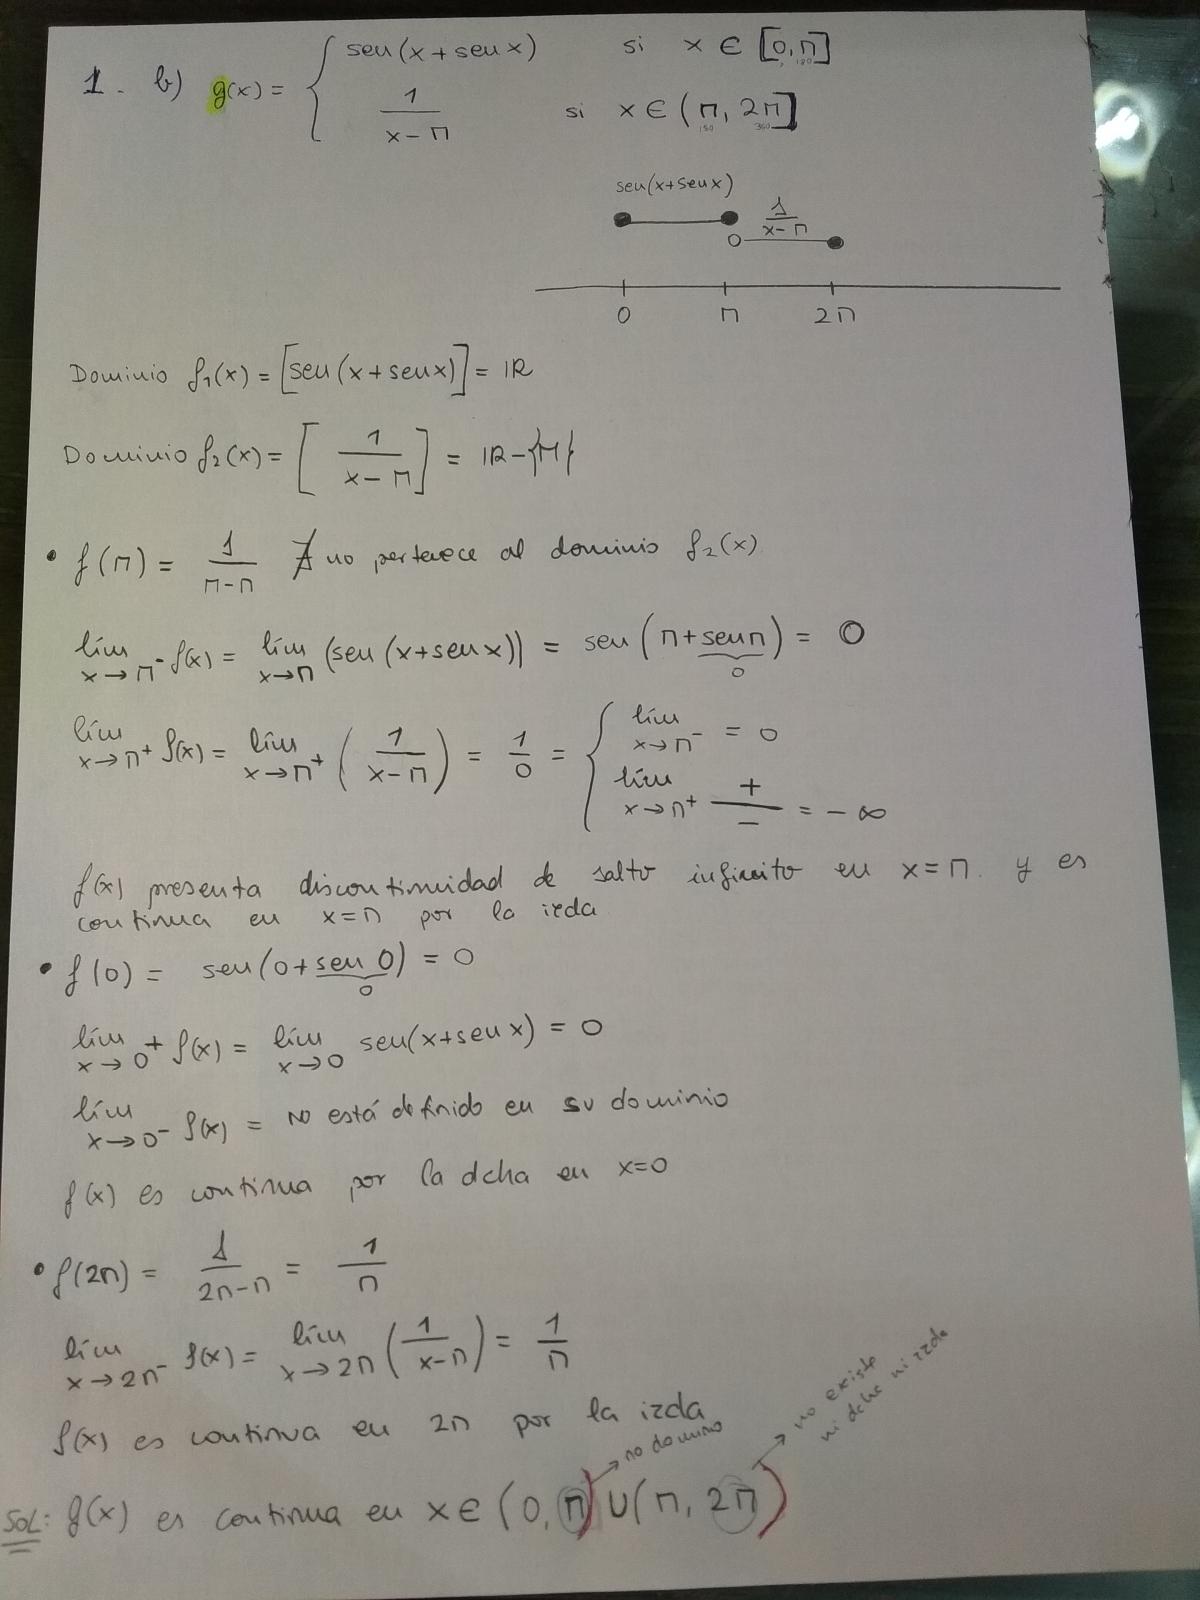 1. b) g(x) = { sen(x + sen x) si x ∈ [0, π]
180
1/(x - π) si x ∈ (π, 2π]
180 360
sen(x+senx)
1/(x-π)
0 π 2π
Dominio f₁(x) = [sen(x + senx)] = IR
Dominio f₂(x) = [1/(x - π)] = IR - {π}
• f(π) = 1/(π-π) ∄ no pertenece al dominio f₂(x)
lím x→π⁻ f(x) = lím x→π (sen(x+senx)) = sen(π + senπ) = 0
0
lím x→π⁺ f(x) = lím x→π⁺ (1/(x-π)) = 1/0 = { lím x→π⁻ = 0
lím x→π⁺ +/- = -∞
f(x) presenta discontinuidad de salto infinito en x=π y es
continua en x=π por la izda
• f(0) = sen(0+sen 0) = 0
0
lím x→0⁺ f(x) = lím x→0 sen(x+senx) = 0
lím x→0⁻ f(x) = No está definido en su dominio
f(x) es continua por la dcha en x=0
• f(2π) = 1/(2π-π) = 1/π
lím x→2π⁻ f(x) = lím x→2π (1/(x-π)) = 1/π
f(x) es continua en 2π por la izda
→ no dominio
→ no existe
ni dcha ni izda
SOL: g(x) es continua en x ∈ (0, π) ∪ (π, 2π)